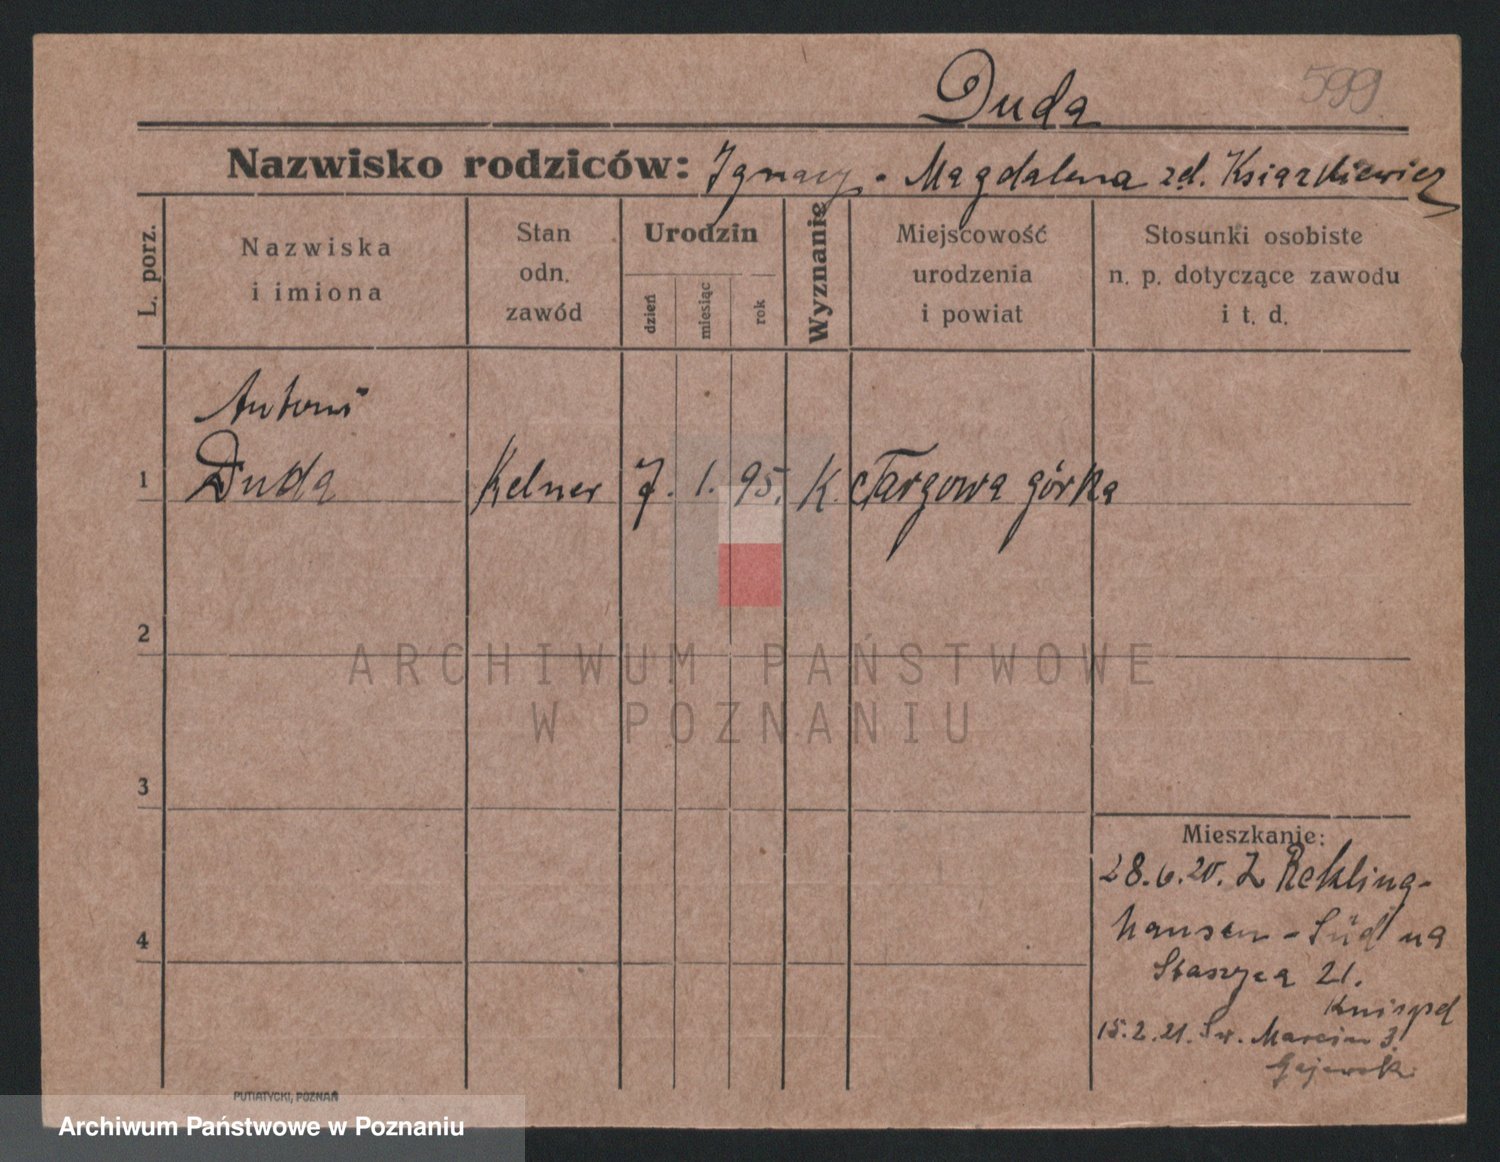 Duda
599
Nazwisko rodziców: Ignacy - Magdalena zd. Książkiewicz
L. porz.
Nazwiska
i imiona
Stan
odn.
zawód
Urodzin
dzień
miesiąc
rok
Wyznanie
Miejscowość
urodzenia
i powiat
Stosunki osobiste
n. p. dotyczące zawodu
i t. d.
Antoni
1 Duda Kelner 7. 1. 95. K. Targowa górka
2
ARCHIWUM PAŃSTWOWE
W POZNANIU
3
Mieszkanie:
28.6.20. Z Rekling-
hausen - Süd na
4
Staszyca 21.
15.2.21. Św. Marcin 3.
PUTIATYCKI, POZNAŃ
Archiwum Państwowe w Poznaniu